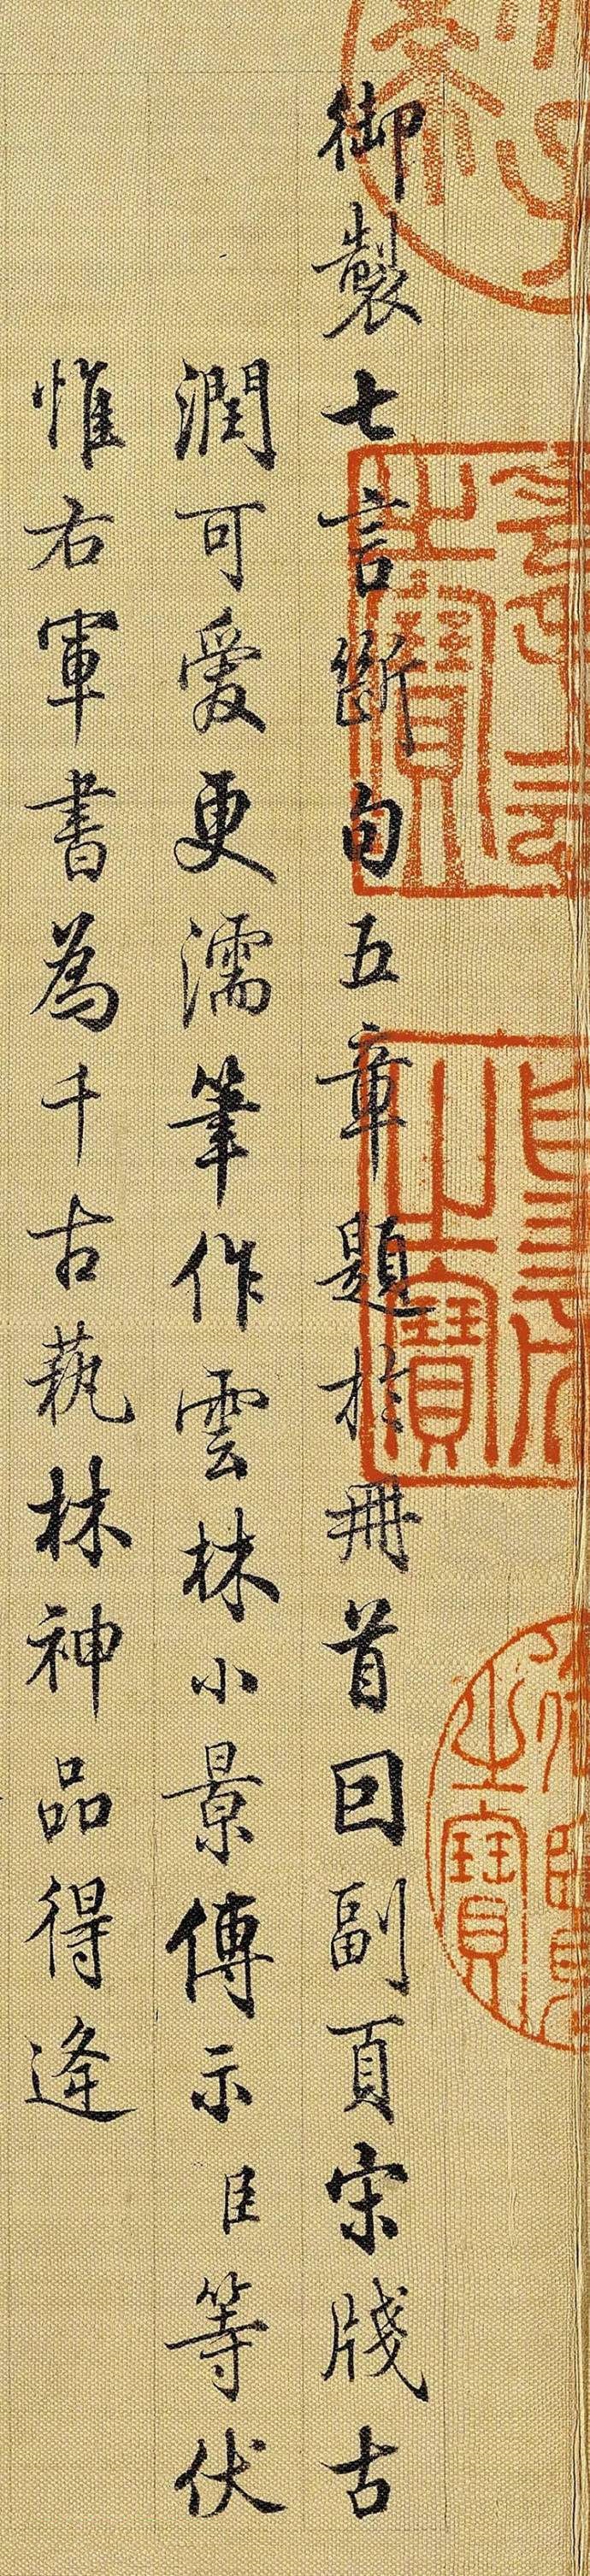 御製七言斷句五章題於冊首回副頁宋牋古
潤可愛更濡筆作雲林小景傳示臣等伏
惟右軍書為千古蓺林神品得逢
之寶
之寶
之寶